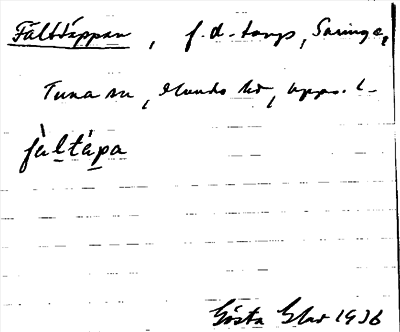 Fälttäppan, f.d. torp, Saringe,
Tuna sn, Olands hd, Upps. l.
fàltápa
Gösta Elar 1936